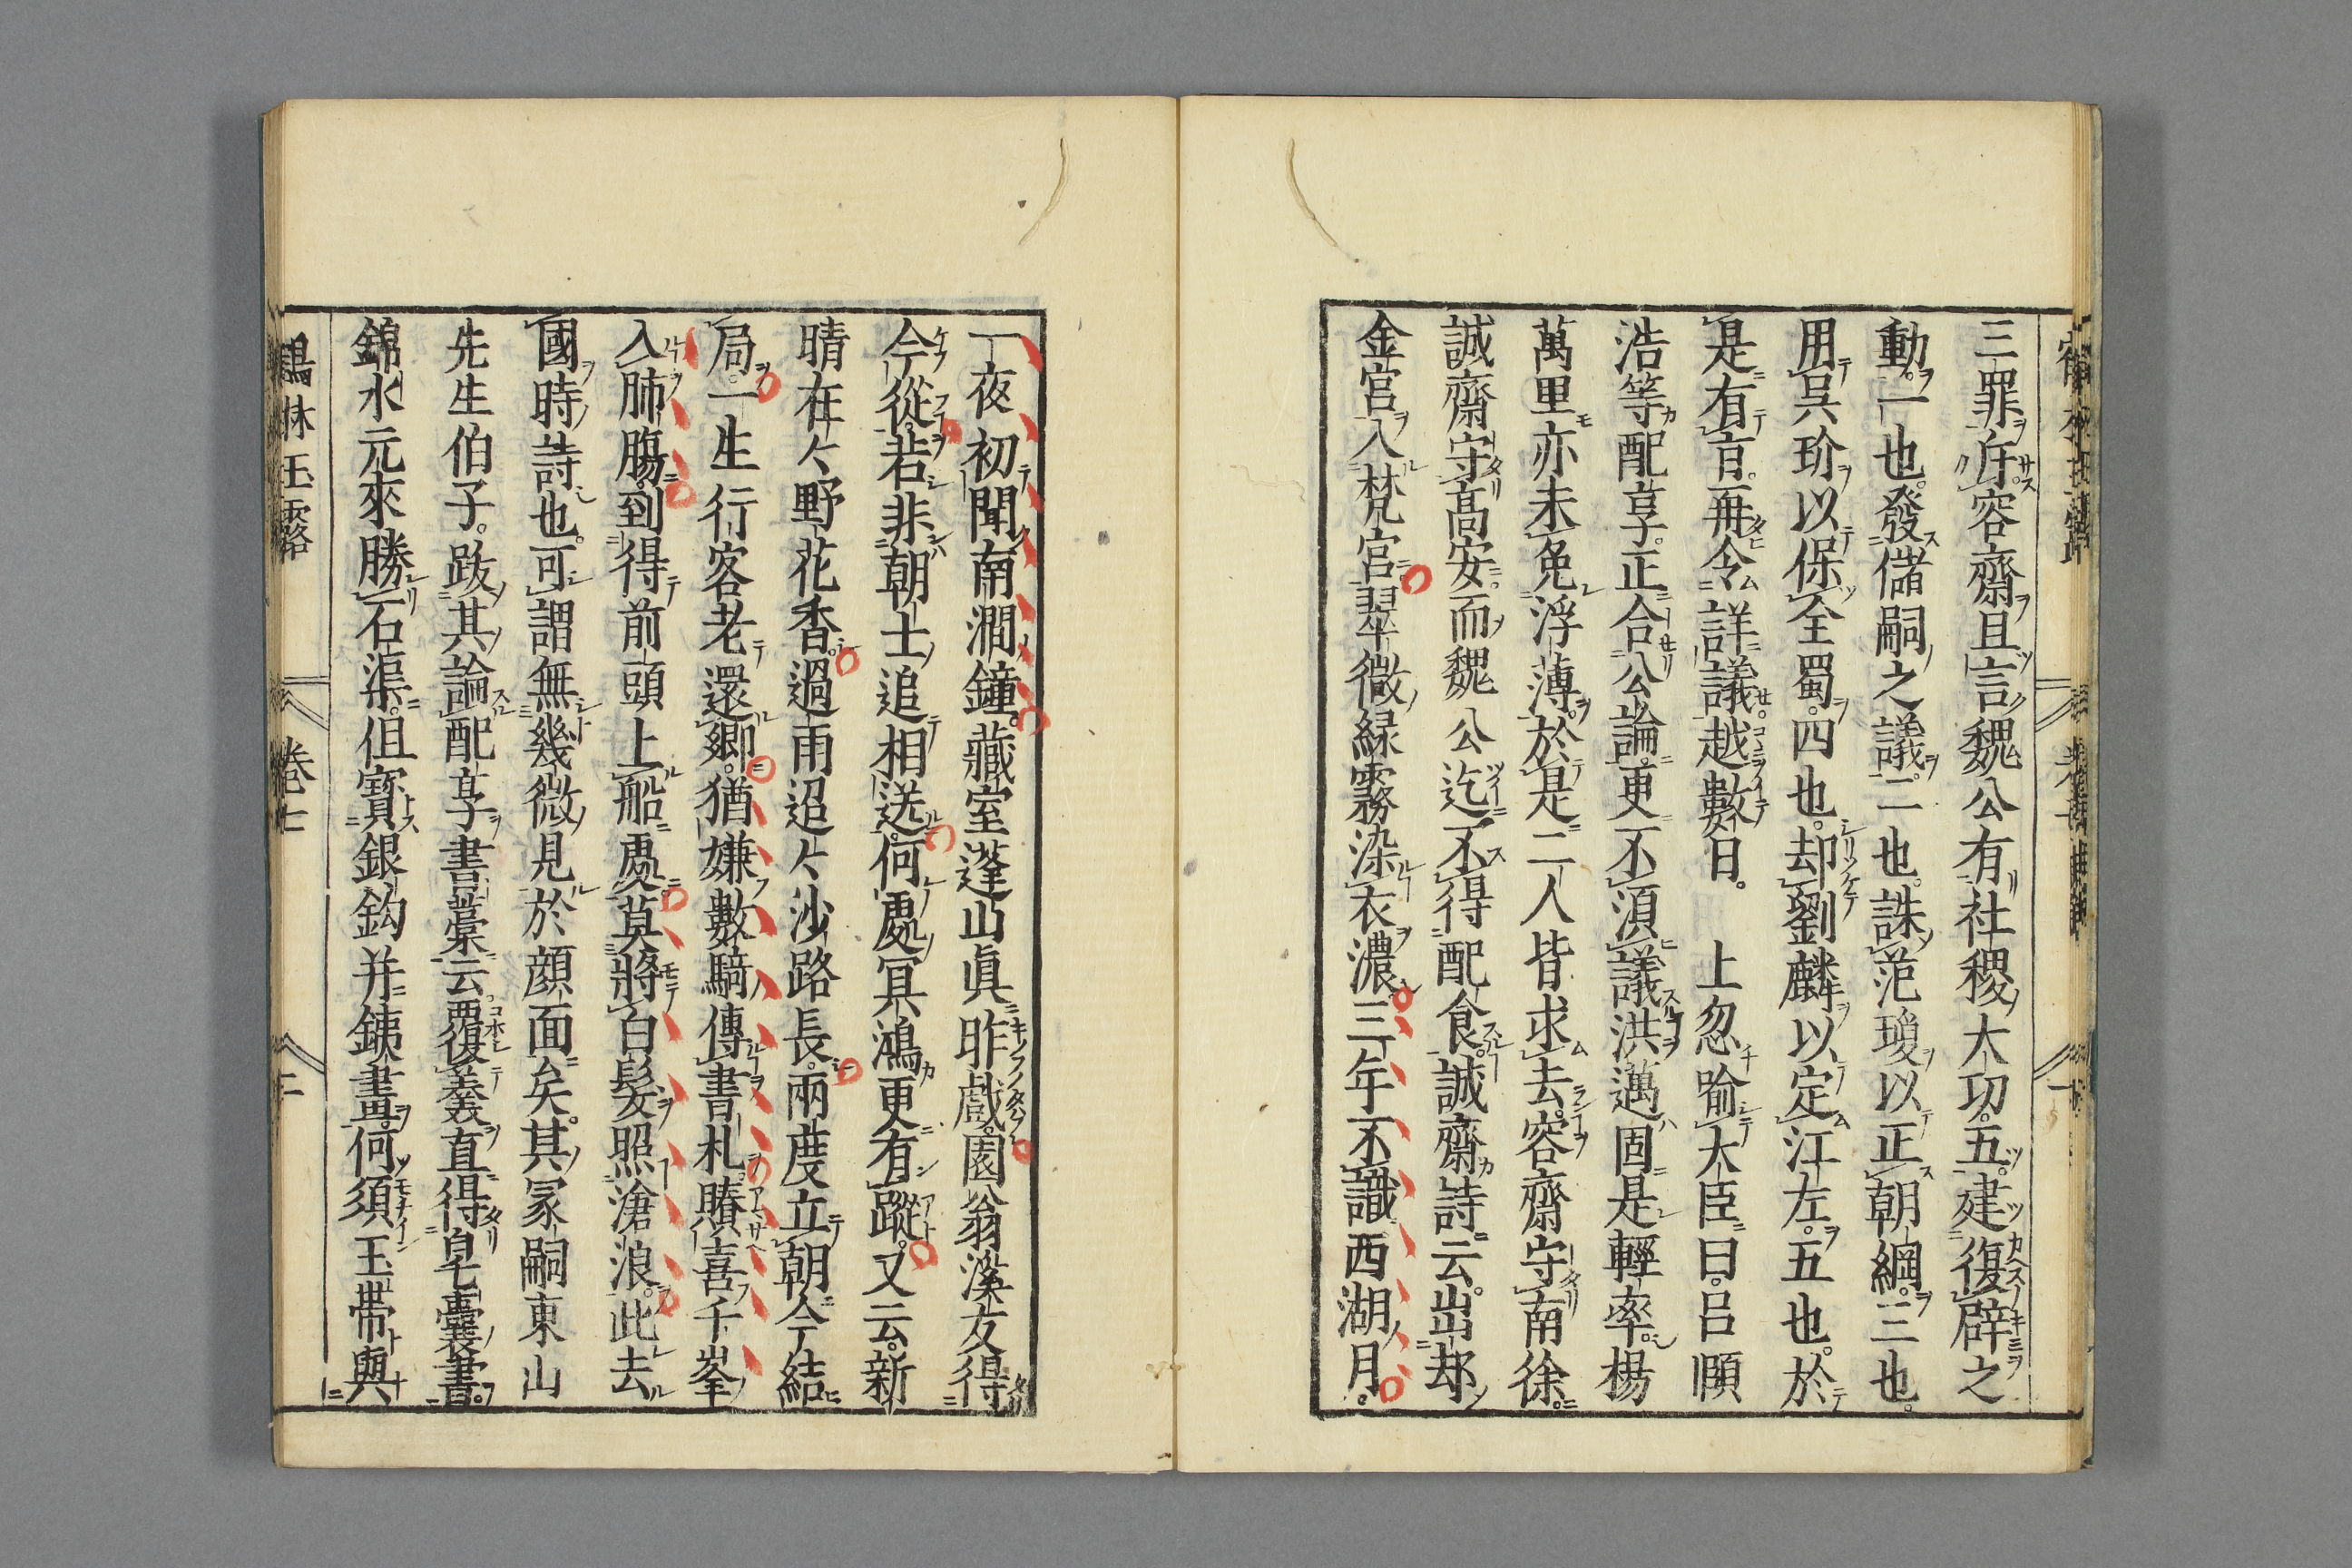 三罪斥容齋且言魏公有社稷大功五建復辟之
動一也發儲嗣之議二也誅范瓊以正朝綱三也
用吳玠以保全蜀四也却劉麟以定江左五也於
是有言再令詳議越數日 上忽喻大臣曰呂頤
浩等配享正合公論更不湏議洪邁固是輕率楊
萬里亦未免浮薄於是二人皆求去容齋守南徐
誠齋守高安而魏公迄不得配食誠齋詩云出却
金宮入梵宮翠微緑霧染衣濃三年不識西湖月
一夜初聞南澗鐘藏室蓬山眞昨戲園翁溪友得
今從若非朝士追相送何處冥鴻更有蹤又云新
晴在々野花香過雨迢々沙路長兩度立朝今結
局一生行客老還鄉猶嫌數騎傳書札賸喜千峯
入肺腸到得前頭上船處莫將白髮照滄浪此去
國時詩也可謂無幾微見於顔面矣其冢嗣東山
先生伯子跋其論配享書藁云覆羲直得皂囊書
錦水元來勝石渠但寶銀鈎并鐵畫何須玉帶與
鶴林玉露 卷七